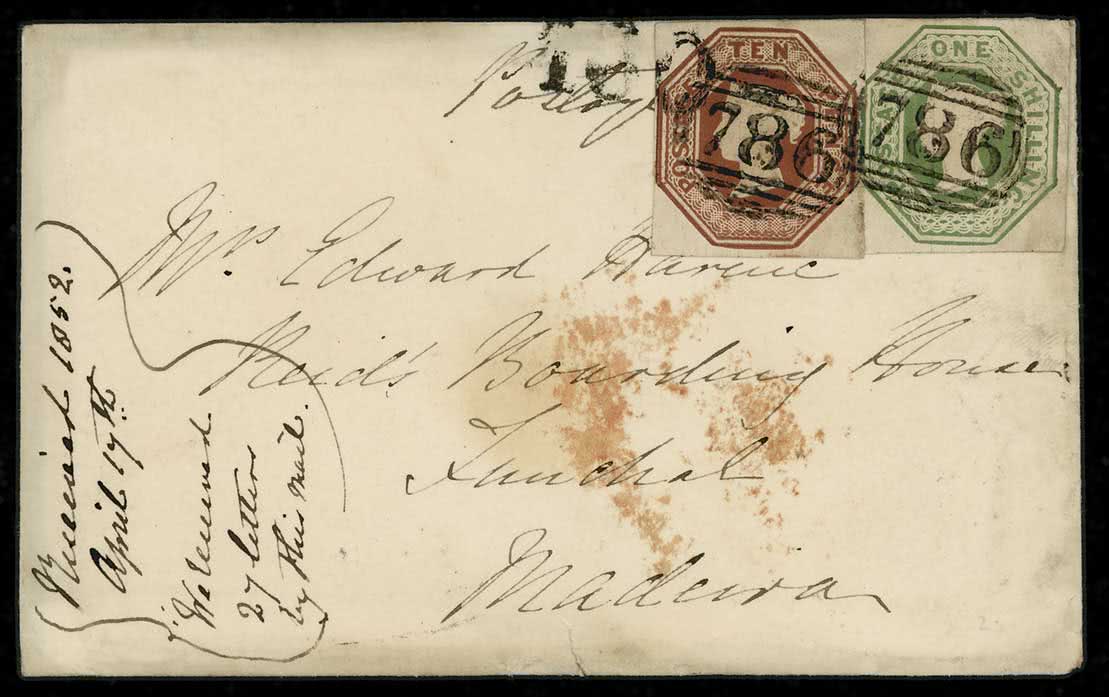 Postage
TEN
POSTAGE
786
ONE SHILLING
POSTAGE
786
Mrs Edward
Reid's Boarding House
Funchal
Madeira
Received 1852.
April 17th
We received
27 letters
by this mail.